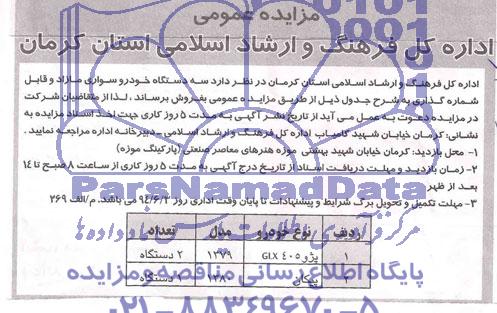 مزایده عمومی
اداره کل فرهنگ و ارشاد اسلامی استان کرمان
اداره کل فرهنگ و ارشاد اسلامی استان کرمان در نظر دارد سه دستگاه خودرو سواری مازاد و قابل
شماره گذاری به شرح جدول ذیل از طریق مزایده عمومی بفروش برساند، لذا از متقاضیان شرکت
در مزایده دعوت به عمل می آید از تاریخ نشر آگهی به مدت ۵ روز کاری جهت اخذ اسناد مزایده به
نشانی: کرمان خیابان شهید کامیاب اداره کل فرهنگ و ارشاد اسلامی - دبیرخانه اداره مراجعه نمایید.
۱- محل بازدید: کرمان خیابان شهید بهشتی موزه هنرهای معاصر صنعتی (پارکینگ موزه)
۲- زمان بازدید و مهلت دریافت اسناد از تاریخ درج آگهی به مدت ۵ روز کاری از ساعت ۸ صبح تا ۱۴
بعد از ظهر
۳- مهلت تکمیل و تحویل برگ شرایط و پیشنهادات تا پایان وقت اداری روز ۹۴/۶/۲ می باشد. م/الف ۲۶۹
ردیف نوع خودرو مدل تعداد
۱ پژو ۴۰۵ GLX ۱۳۷۹ ۲ دستگاه
۲ پیکان ۱۳۸۰ ۱ دستگاه
ParsNamadData
پایگاه اطلاع رسانی مناقصه و مزایده
۰۲۱-۸۸۳۴۹۶۷۰-۵